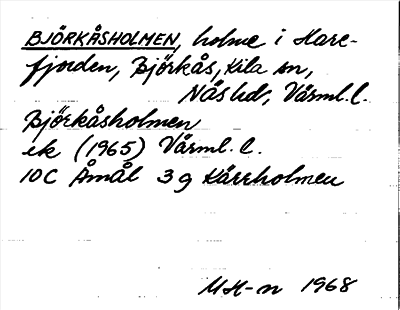 BJÖRKÅSHOLMEN, holme i Hare-
fjorden, Björkås, Kila sn,
Näs hd, Värml. l.
Björkåsholmen
ek (1965) Värml. l.
10C Åmål 3g Kärrholmen
MH-n 1968